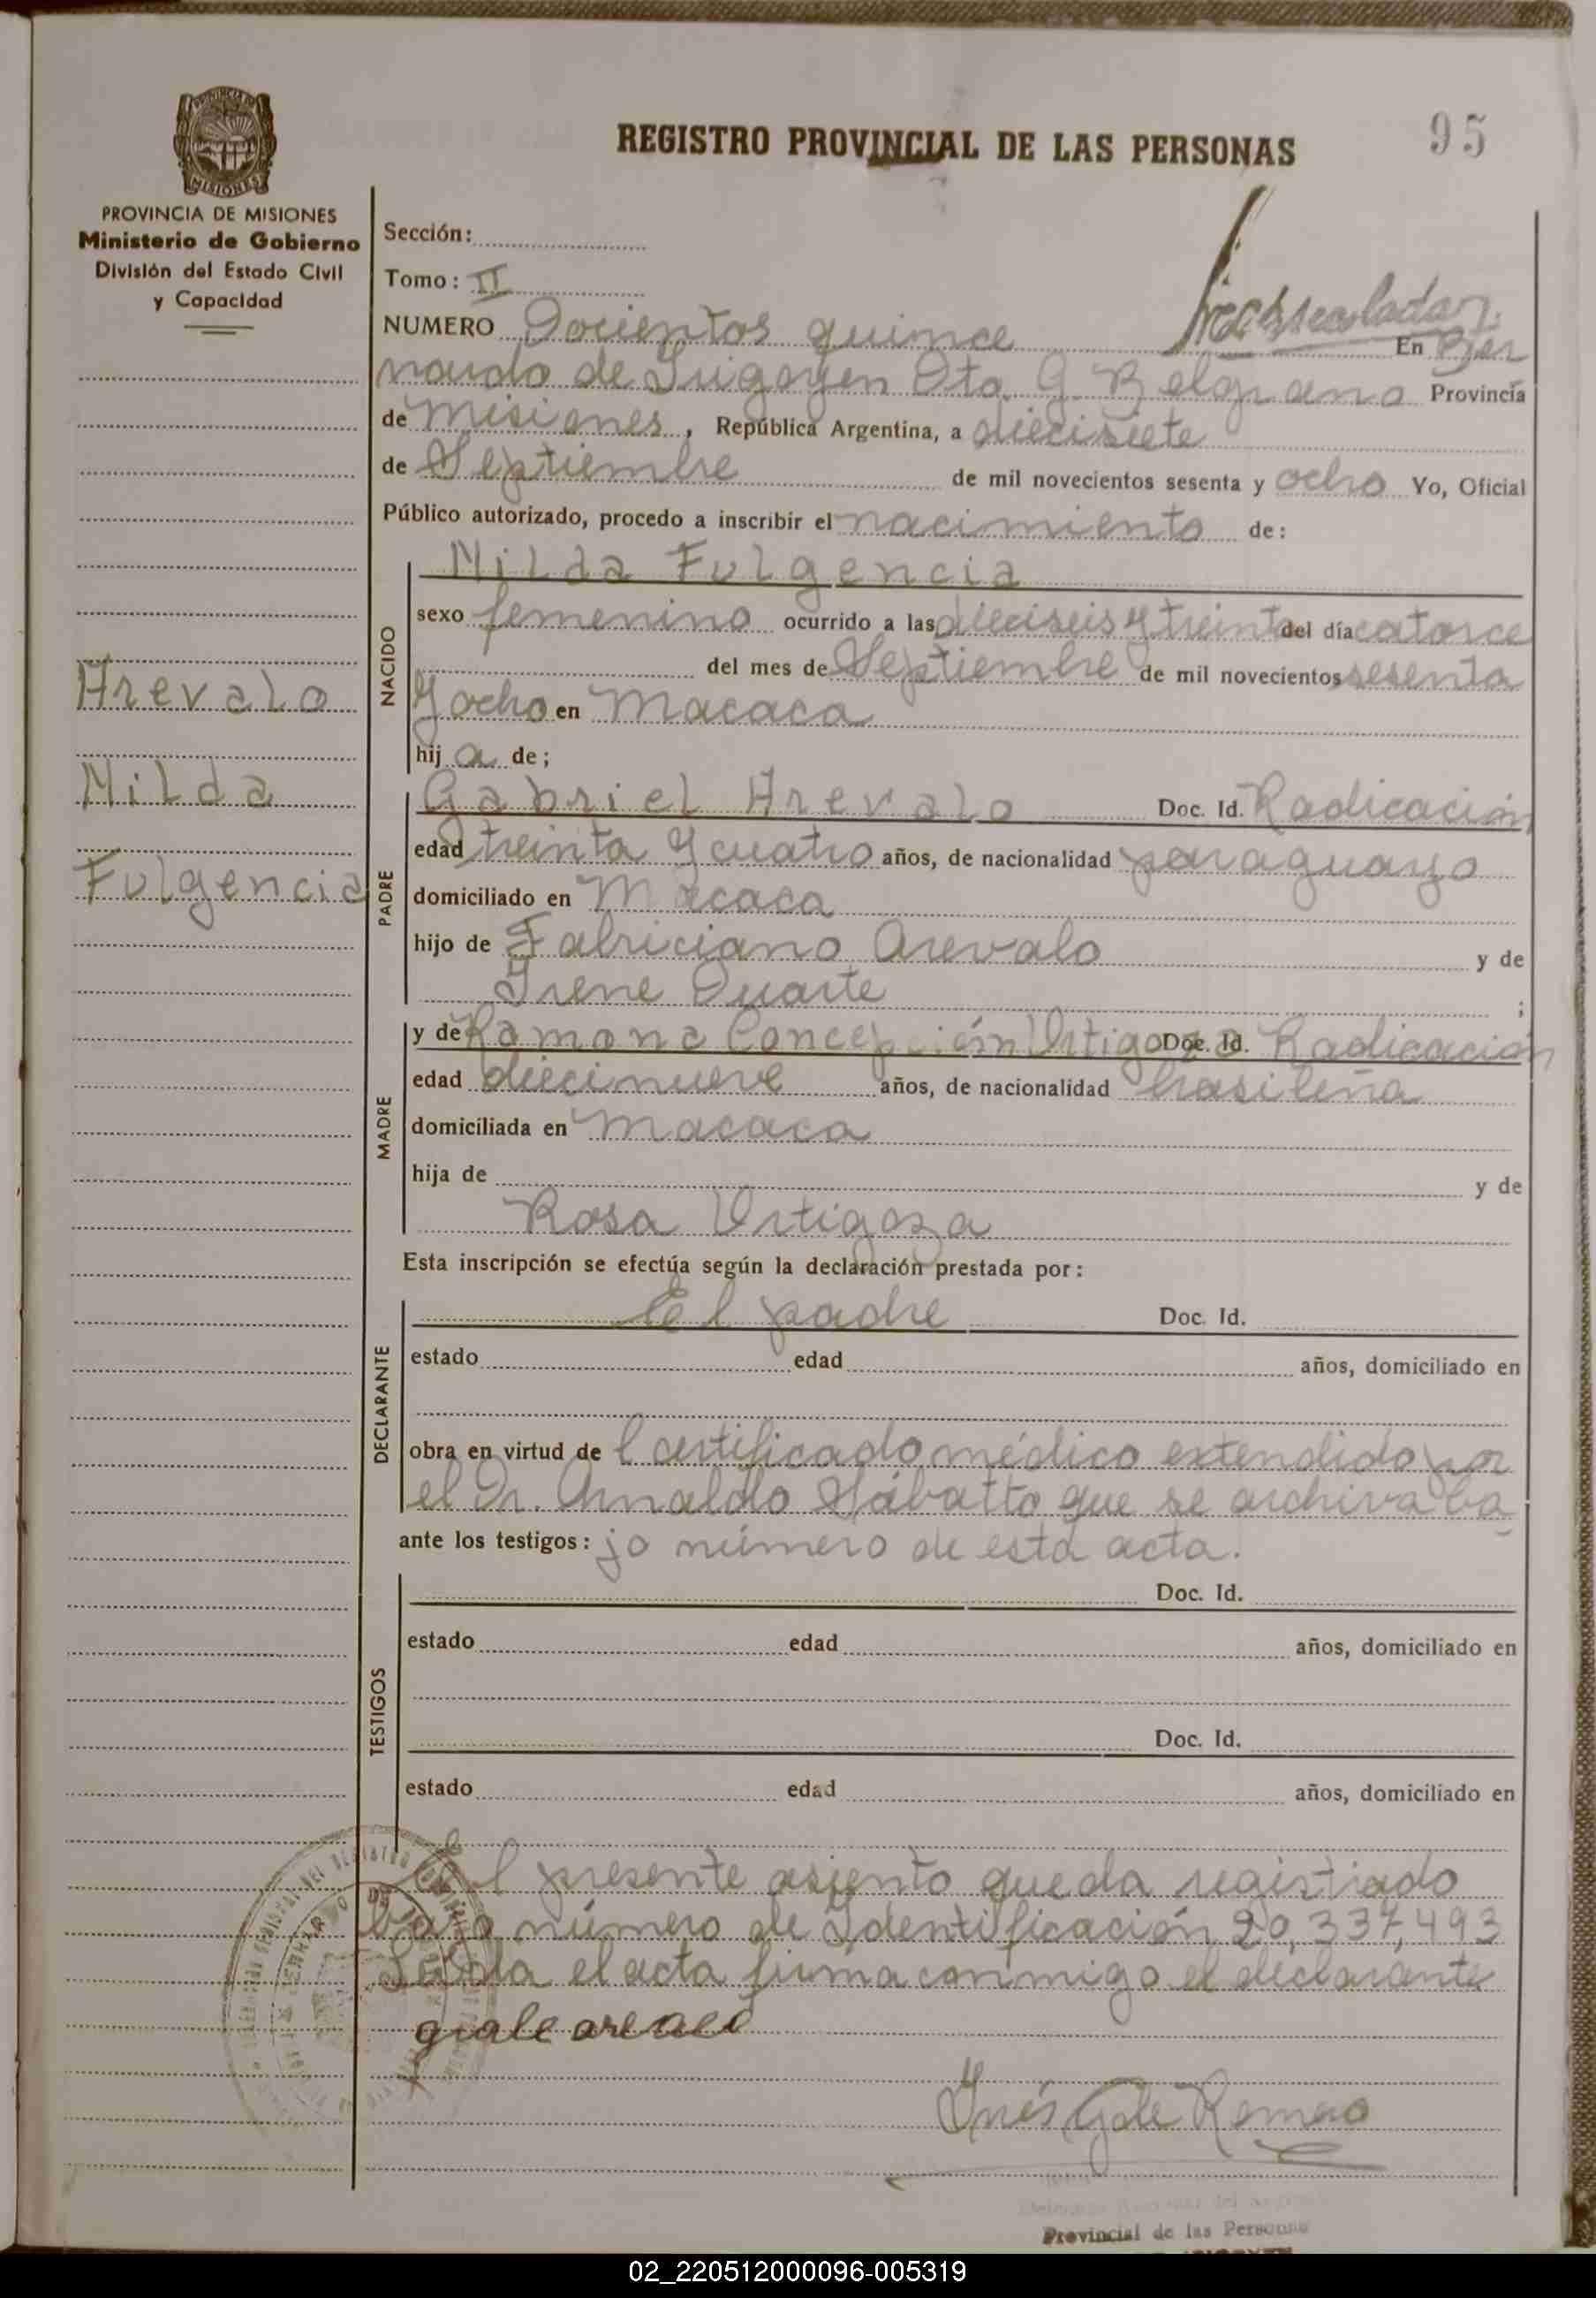 95
REGISTRO PROVINCIAL DE LAS PERSONAS
PROVINCIA DE MISIONES
Ministerio de Gobierno
División del Estado Civil
y Capacidad
Sección:
Tomo: II
NUMERO Docientos quince
En Ber
nardo de Irigoyen Dto. G. Belgrano Provincia
de Misiones, República Argentina, a diecisiete
de Septiembre de mil novecientos sesenta y ocho Yo, Oficial
Público autorizado, procedo a inscribir el nacimiento de:
Milda Fulgencia
NACIDO
sexo femenino ocurrido a las dieciseis y treinta del día catorce
del mes de Septiembre de mil novecientos sesenta
y ocho en Macaca
hija de;
Arevalo
Milda
Fulgencia
PADRE
Gabriel Arevalo Doc. Id. Radicación
edad treinta y cuatro años, de nacionalidad paraguayo
domiciliado en Macaca
hijo de Fabriciano Arevalo y de
Irene Duarte ;
MADRE
y de Ramona Concepción Ortigoza Doc. Id. Radicación
edad diecinueve años, de nacionalidad brasileña
domiciliada en Macaca
hija de y de
Rosa Ortigoza
Esta inscripción se efectúa según la declaración prestada por:
DECLARANTE
El padre Doc. Id.
estado edad años, domiciliado en
obra en virtud de l certificado médico extendido por
el Dr. Arnaldo Sábatto que se archiva ba
ante los testigos: jo número de esta acta.
TESTIGOS
Doc. Id.
estado edad años, domiciliado en
Doc. Id.
estado edad años, domiciliado en
El presente asiento queda registrado
bajo número de Identificación 20,337,493
Leída el acta firma conmigo el declarante
Inés G de Romero
Provincial de las Personas
02_220512000096-005319